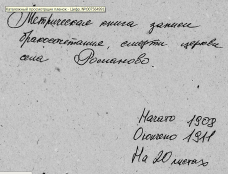 Метрическая книга записи
бракосочетания, смерти церкви
села Романово.
Начато 1908
Окончено 1911
На 20 листах